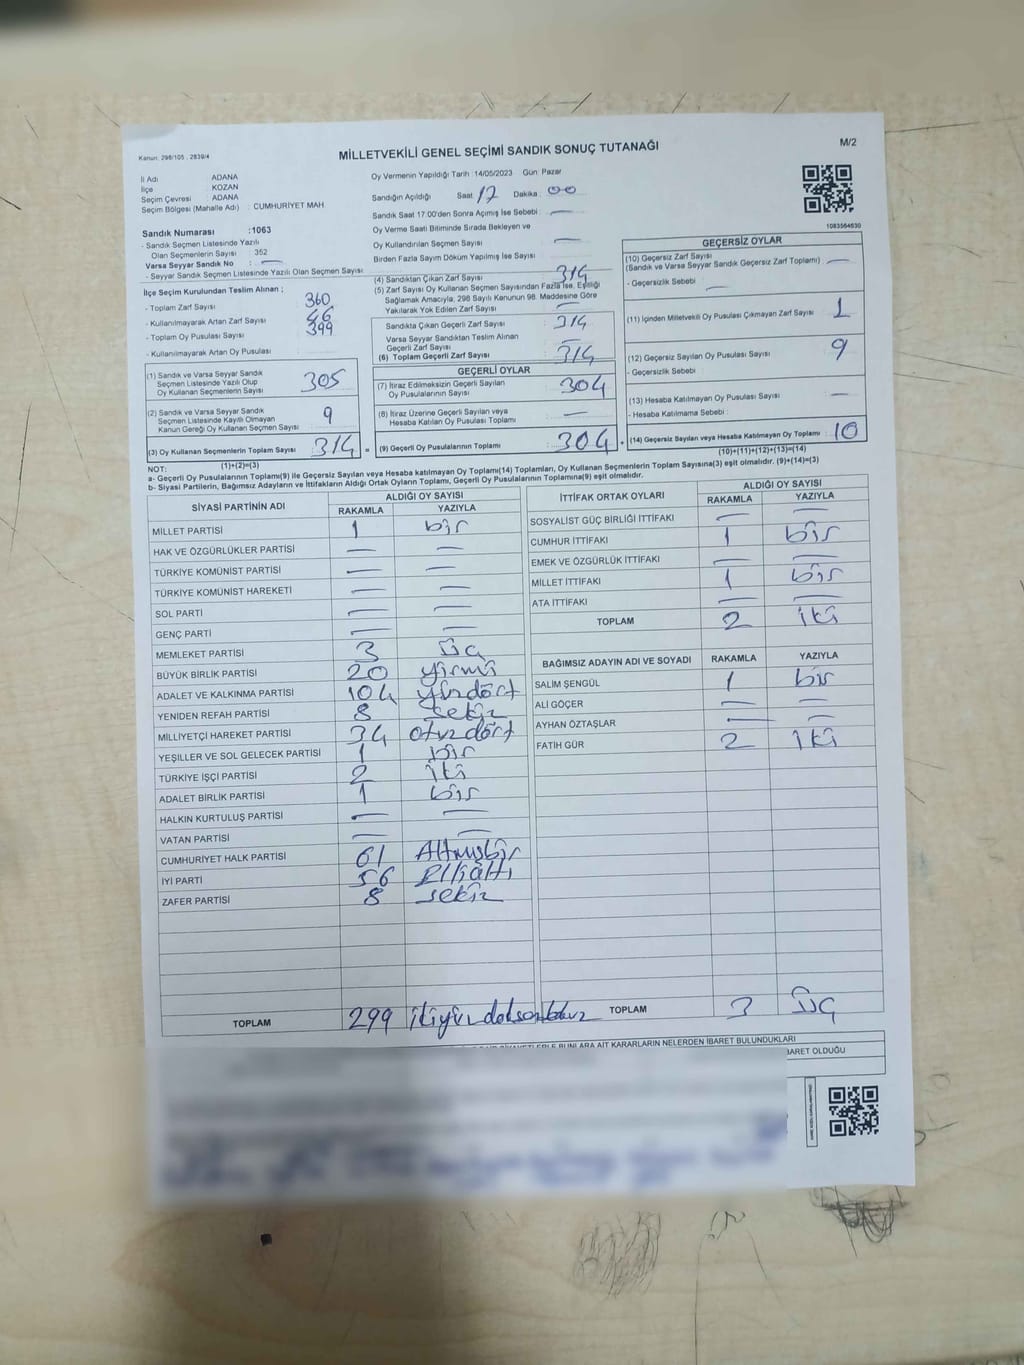 Kanun: 298/105 , 2839/4
MİLLETVEKİLİ GENEL SEÇİMİ SANDIK SONUÇ TUTANAĞI
M/2
İl Adı ADANA
İlçe KOZAN
Seçim Çevresi ADANA
Seçim Bölgesi (Mahalle Adı) : CUMHURİYET MAH.
Sandık Numarası :1063
- Sandık Seçmen Listesinde Yazılı
Olan Seçmenlerin Sayısı 352
Varsa Seyyar Sandık No : —
- Seyyar Sandık Seçmen Listesinde Yazılı Olan Seçmen Sayısı
Oy Vermenin Yapıldığı Tarih :14/05/2023 Gün: Pazar
Sandığın Açıldığı Saat: 17 Dakika : 00
Sandık Saat 17.00'den Sonra Açımış İse Sebebi : —
Oy Verme Saati Bitiminde Sırada Bekleyen ve
Oy Kullandırılan Seçmen Sayısı —
Birden Fazla Sayım Döküm Yapılmış İse Sayısı —
1083564630
İlçe Seçim Kurulundan Teslim Alınan ;
- Toplam Zarf Sayısı 360
- Kullanılmayarak Artan Zarf Sayısı 46
- Toplam Oy Pusulası Sayısı 399
- Kullanılmayarak Artan Oy Pusulası
(1) Sandık ve Varsa Seyyar Sandık
Seçmen Listesinde Yazılı Olup
Oy Kullanan Seçmenlerin Sayısı 305
(2) Sandık ve Varsa Seyyar Sandık
Seçmen Listesinde Kayıtlı Olmayan
Kanun Gereği Oy Kullanan Seçmen Sayısı 9
(3) Oy Kullanan Seçmenlerin Toplam Sayısı 314 =
(1)+(2)=(3)
(4) Sandıktan Çıkan Zarf Sayısı 314
(5) Zarf Sayısı Oy Kullanan Seçmen Sayısından Fazla İse, Eşitliği
Sağlamak Amacıyla, 298 Sayılı Kanunun 98. Maddesine Göre
Yakılarak Yok Edilen Zarf Sayısı —
Sandıkta Çıkan Geçerli Zarf Sayısı : 314
Varsa Seyyar Sandıktan Teslim Alınan
Geçerli Zarf Sayısı —
(6) Toplam Geçerli Zarf Sayısı : 314
GEÇERLİ OYLAR
(7) İtiraz Edilmeksizin Geçerli Sayılan
Oy Pusulalarının Sayısı : 304
(8) İtiraz Üzerine Geçerli Sayılan veya
Hesaba Katılan Oy Pusulası Toplamı : —
(9) Geçerli Oy Pusulalarının Toplamı : 304 +
GEÇERSİZ OYLAR
(10) Geçersiz Zarf Sayısı
(Sandık ve Varsa Seyyar Sandık Geçersiz Zarf Toplamı) : —
- Geçersizlik Sebebi : —
(11) İçinden Milletvekili Oy Pusulası Çıkmayan Zarf Sayısı : 1
(12) Geçersiz Sayılan Oy Pusulası Sayısı : 9
- Geçersizlik Sebebi :
(13) Hesaba Katılmayan Oy Pusulası Sayısı : —
- Hesaba Katılmama Sebebi :
(14) Geçersiz Sayılan veya Hesaba Katılmayan Oy Toplamı : 10
(10)+(11)+(12)+(13)=(14)
NOT:
a- Geçerli Oy Pusulalarının Toplamı(9) ile Geçersiz Sayılan veya Hesaba katılmayan Oy Toplamı(14) Toplamları, Oy Kullanan Seçmenlerin Toplam Sayısına(3) eşit olmalıdır. (9)+(14)=(3)
b- Siyasi Partilerin, Bağımsız Adayların ve İttifakların Aldığı Ortak Oyların Toplamı, Geçerli Oy Pusulalarının Toplamına(9) eşit olmalıdır.
SİYASİ PARTİNİN ADI ALDIĞI OY SAYISI
RAKAMLA YAZIYLA
MİLLET PARTİSİ 1 bir
HAK VE ÖZGÜRLÜKLER PARTİSİ — —
TÜRKİYE KOMÜNİST PARTİSİ — —
TÜRKİYE KOMÜNİST HAREKETİ — —
SOL PARTİ — —
GENÇ PARTİ — —
MEMLEKET PARTİSİ 3 üç
BÜYÜK BİRLİK PARTİSİ 20 yirmi
ADALET VE KALKINMA PARTİSİ 104 yüzdört
YENİDEN REFAH PARTİSİ 8 sekiz
MİLLİYETÇİ HAREKET PARTİSİ 34 otuzdört
YEŞİLLER VE SOL GELECEK PARTİSİ 1 bir
TÜRKİYE İŞÇİ PARTİSİ 2 iki
ADALET BİRLİK PARTİSİ 1 bir
HALKIN KURTULUŞ PARTİSİ — —
VATAN PARTİSİ — —
CUMHURİYET HALK PARTİSİ 61 Altmışbir
İYİ PARTİ 56 Elliâltı
ZAFER PARTİSİ 8 sekiz
TOPLAM 299 ikiyüzdoksandokuz
İTTİFAK ORTAK OYLARI ALDIĞI OY SAYISI
RAKAMLA YAZIYLA
SOSYALİST GÜÇ BİRLİĞİ İTTİFAKI — —
CUMHUR İTTİFAKI 1 bir
EMEK VE ÖZGÜRLÜK İTTİFAKI — —
MİLLET İTTİFAKI 1 bir
ATA İTTİFAKI — —
TOPLAM 2 iki
BAĞIMSIZ ADAYIN ADI VE SOYADI RAKAMLA YAZIYLA
SALİM ŞENGÜL 1 bir
ALİ GÖÇER — —
AYHAN ÖZTAŞLAR — —
FATİH GÜR 2 iki
TOPLAM 3 üç
BUNLARA AİT KARARLARIN NELERDEN İBARET BULUNDUKLARI
İBARET OLDUĞU